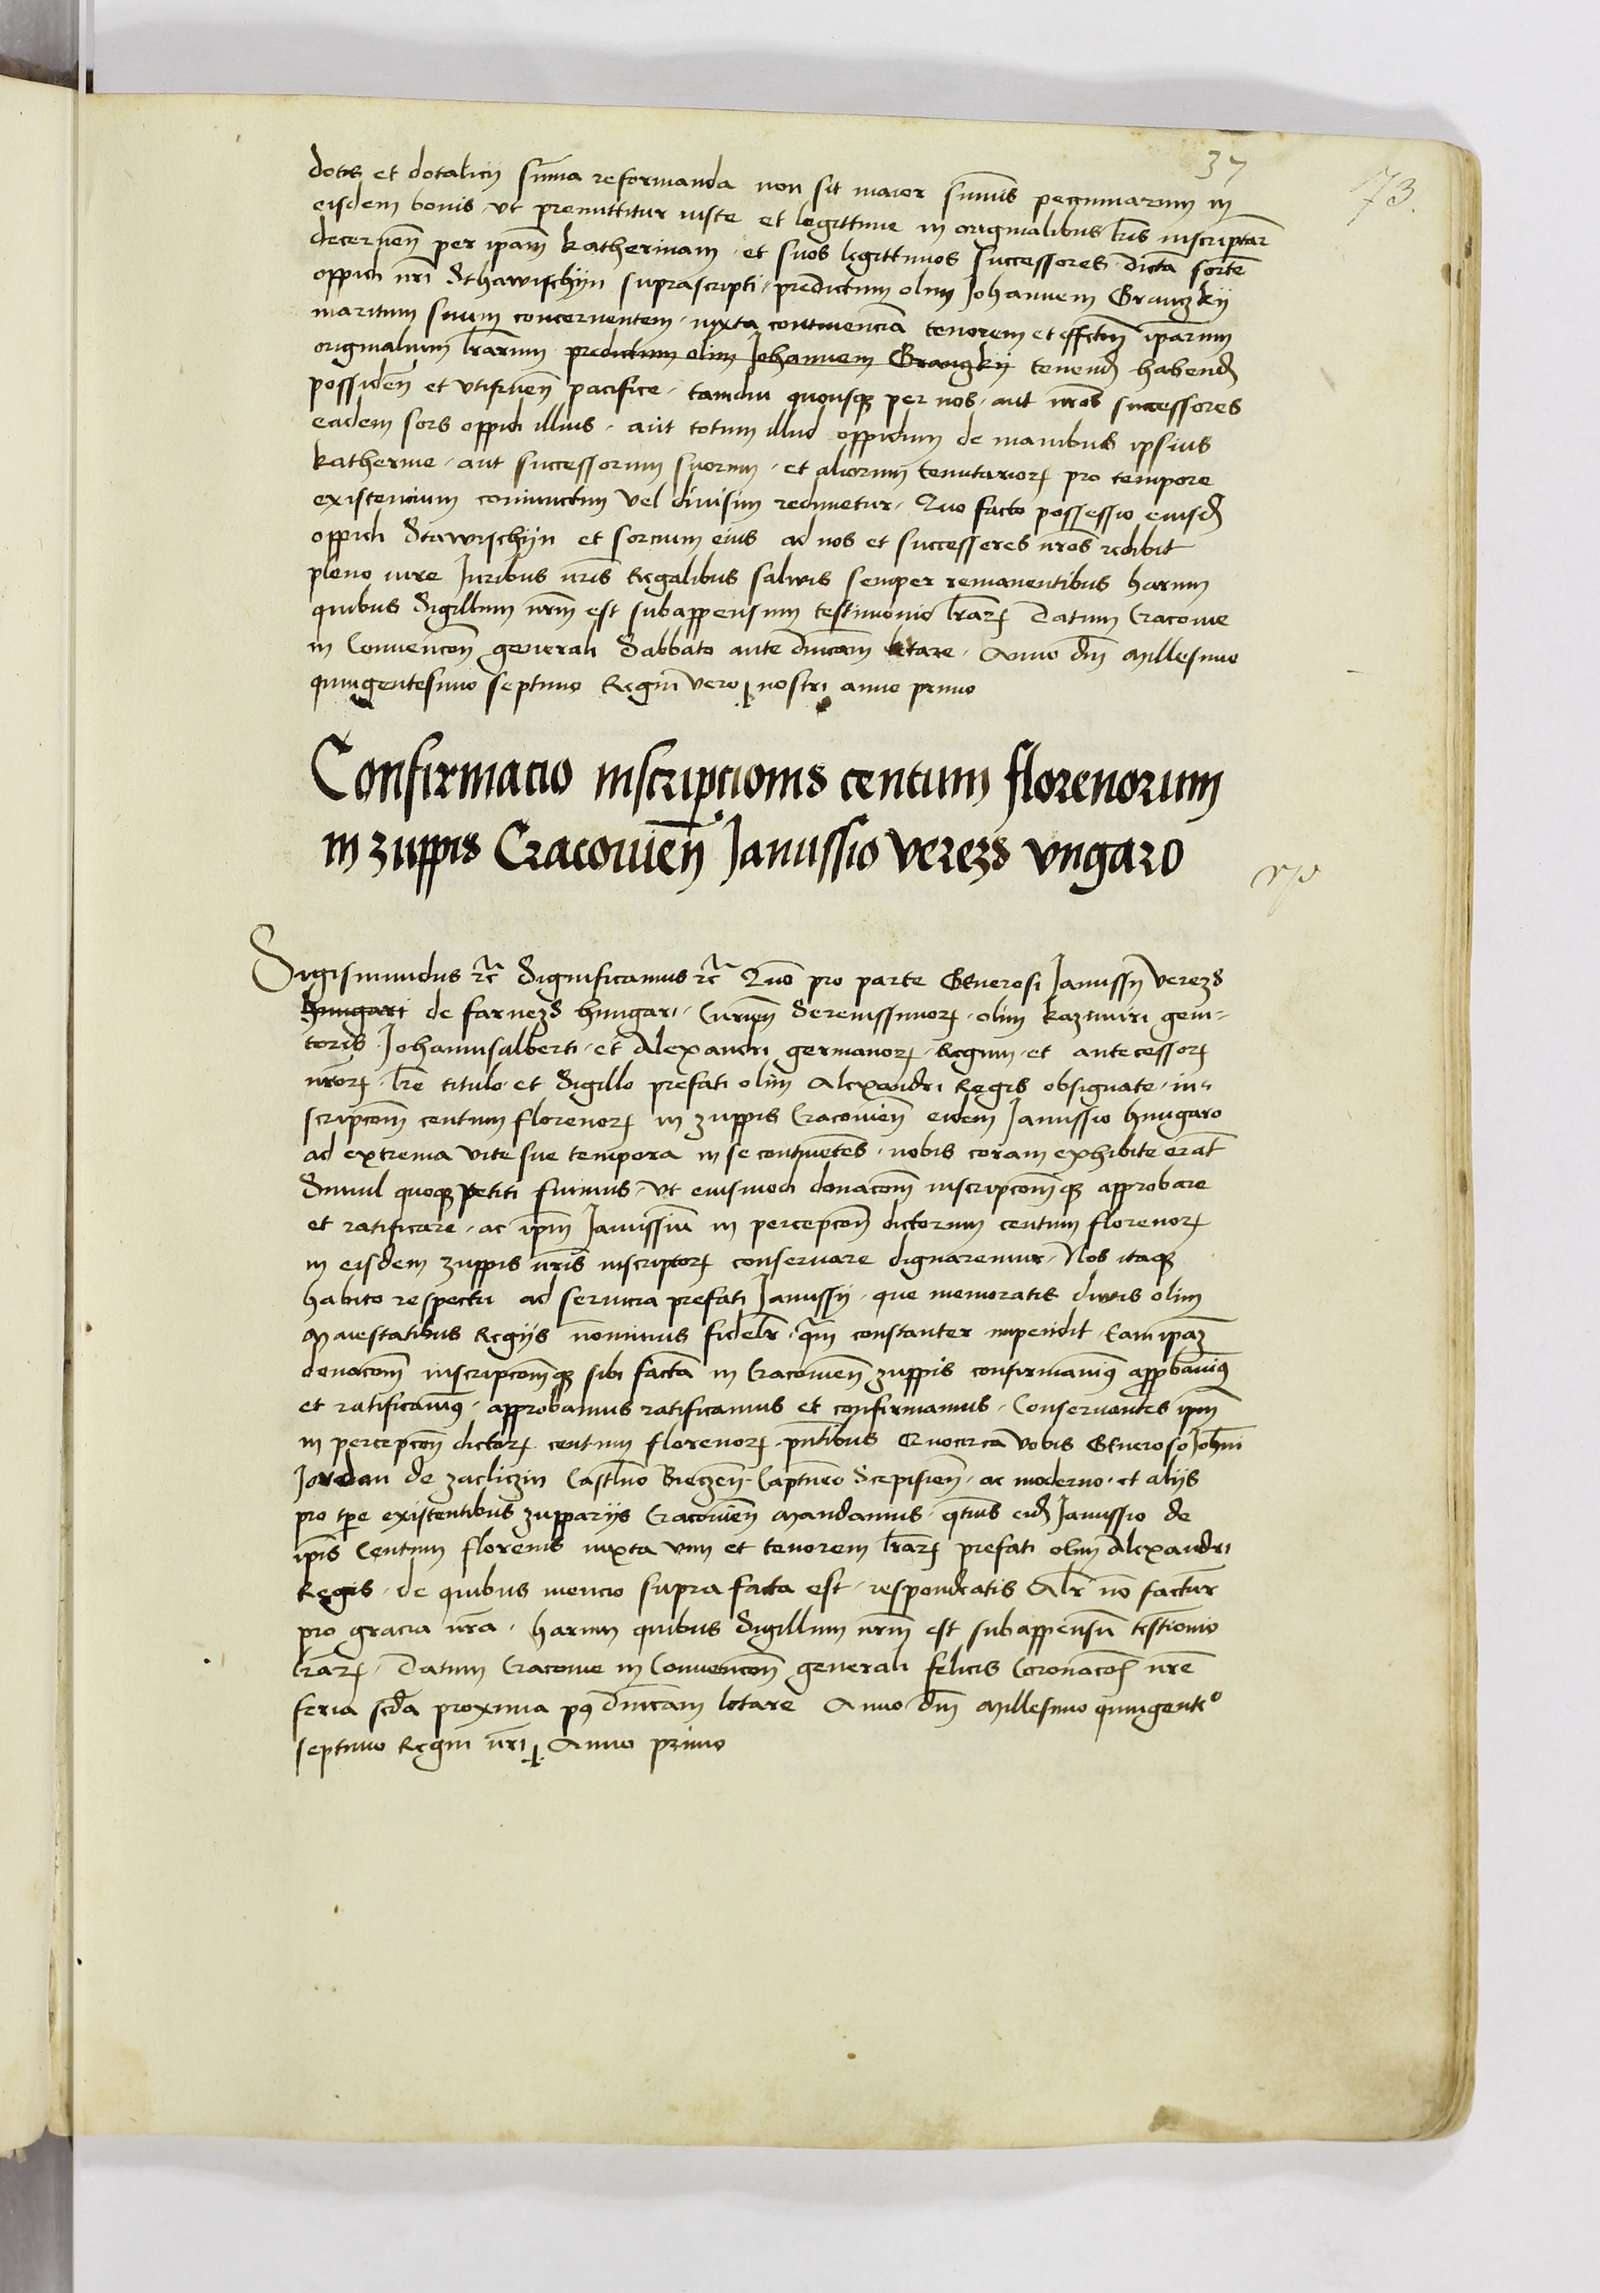 37
73.
dotis et dotalicii sūma reformanda non sit maior sūmis pecuniarum in
eisdem bonis, vt premittitur iuste et legittime in originalibus lr̄is inscriptar̄
decernen̄ per ipam̄ Katherinam, et suos legittimos successores, dictā sortē
oppidi nr̄i Sthawischÿn suprascripti, predictum olim Johannem Granzkÿ
maritum suum concernentem, iuxta continenciā tenorem et effctūm ipārum
originalium lr̄arum predictum olim Johannem Granzkÿ tenend̄ habend̄
possiden̄ et vtifruen̄ pacifice, tamdiu quousqꝫ per nos, aut nr̄os successores
eadem sors oppidi illius, aut totum illud oppidum de manibus ipsius
Katherine, aut successorum suorum, et aliorum tenutarioꝝ pro tempore
existencium coniunctim vel diuisim redimetur, Quo facto possessio eiusd̄
oppidi Stawischÿn et sorcium eius ad nos et successores nr̄os redibit
pleno iure Juribus nr̄is Regalibus saluis semper remanentibus harum
quibus Sigillum nr̄m est subappensum testimonio lr̄aꝝ Datum Cracouie
in Conuencōn generali Sabbato ante dn̄icam letare, Anno dn̄i Millesimo
quingentesimo septimo Regni vero nostri anno primo
Confirmacio inscriptionis centum florenorum
in zuppis Cracouien̄ Janussio Verezs Vngaro
Sigismundus ꝛc̄ Significamus ꝛc̄ Quō pro parte Generosi Janussÿ Verezs
hungari de farnezs hungari, Curien̄ Serenissimoꝝ, olim Kazimiri geni-
toris, Johannisalberti, et Alexandri germanoꝝ, Regum, et antecessoꝝ
nr̄oꝝ, lr̄e titulo et Sigillo prefati olim Alexandri Regis obsignate, in-
scripcōm centum florenoꝝ in zuppis Cracouien̄ eidem Janussio hungaro
ad extrema vite sue tempora in se continētes, nobis coram exhibite erāt
Simul quoqꝫ petiti fuimus, vt eiusmodi donacōm inscripcōmqꝫ approbare
et ratificare, ac ipm̄ Janussiū in percepcōn dictorum centum florenoꝝ
in eisdem zuppis nr̄is inscriptoꝝ conseruare dignaremur, Nos itaqꝫ
habito respectu ad seruicia prefati Janussÿ, que memoratis diuis olim
Maiestatibus Regÿs nōminus fidelr̄, qm̄ constanter impendit, Eam ipāꝫ
donacōm inscripcōmqꝫ sibi factā in Cracouien̄ zuppis confirmauimꝰ approbauimꝰ
et ratificauimꝰ, approbamus ratificamus et confirmamus, Conseruantes ipm̄
in percepcōn dictoꝝ centum florenoꝝ, pn̄tibus Quocirca vobis Generoso Johā̄ni
Jordan de zacliczin Castlāno Biezen̄ Captūeo Scepisien̄, ac moderno, et alÿs
pro tpe existentibus zupparÿs Cracouien̄ Mandamus, qtīus eid̄ Janussio de
ip̄is Centum florenis iuxta vim et tenorem lr̄aꝝ prefati olim Alexandri
Regis, de quibus mencio supra facta est, respondeatis Alr̄ nō factur̄
pro gracia nr̄a, harum quibus Sigillum nr̄m est subappensū testīonio
lr̄aꝝ, Datum Cracouie in Conuencōn generali felicis Coronacōis nr̄e
feria scd̄a proxima pꝰ dn̄icam letare Anno dn̄i Millesimo quingenteº
septimo Regni nr̄i Anno primo